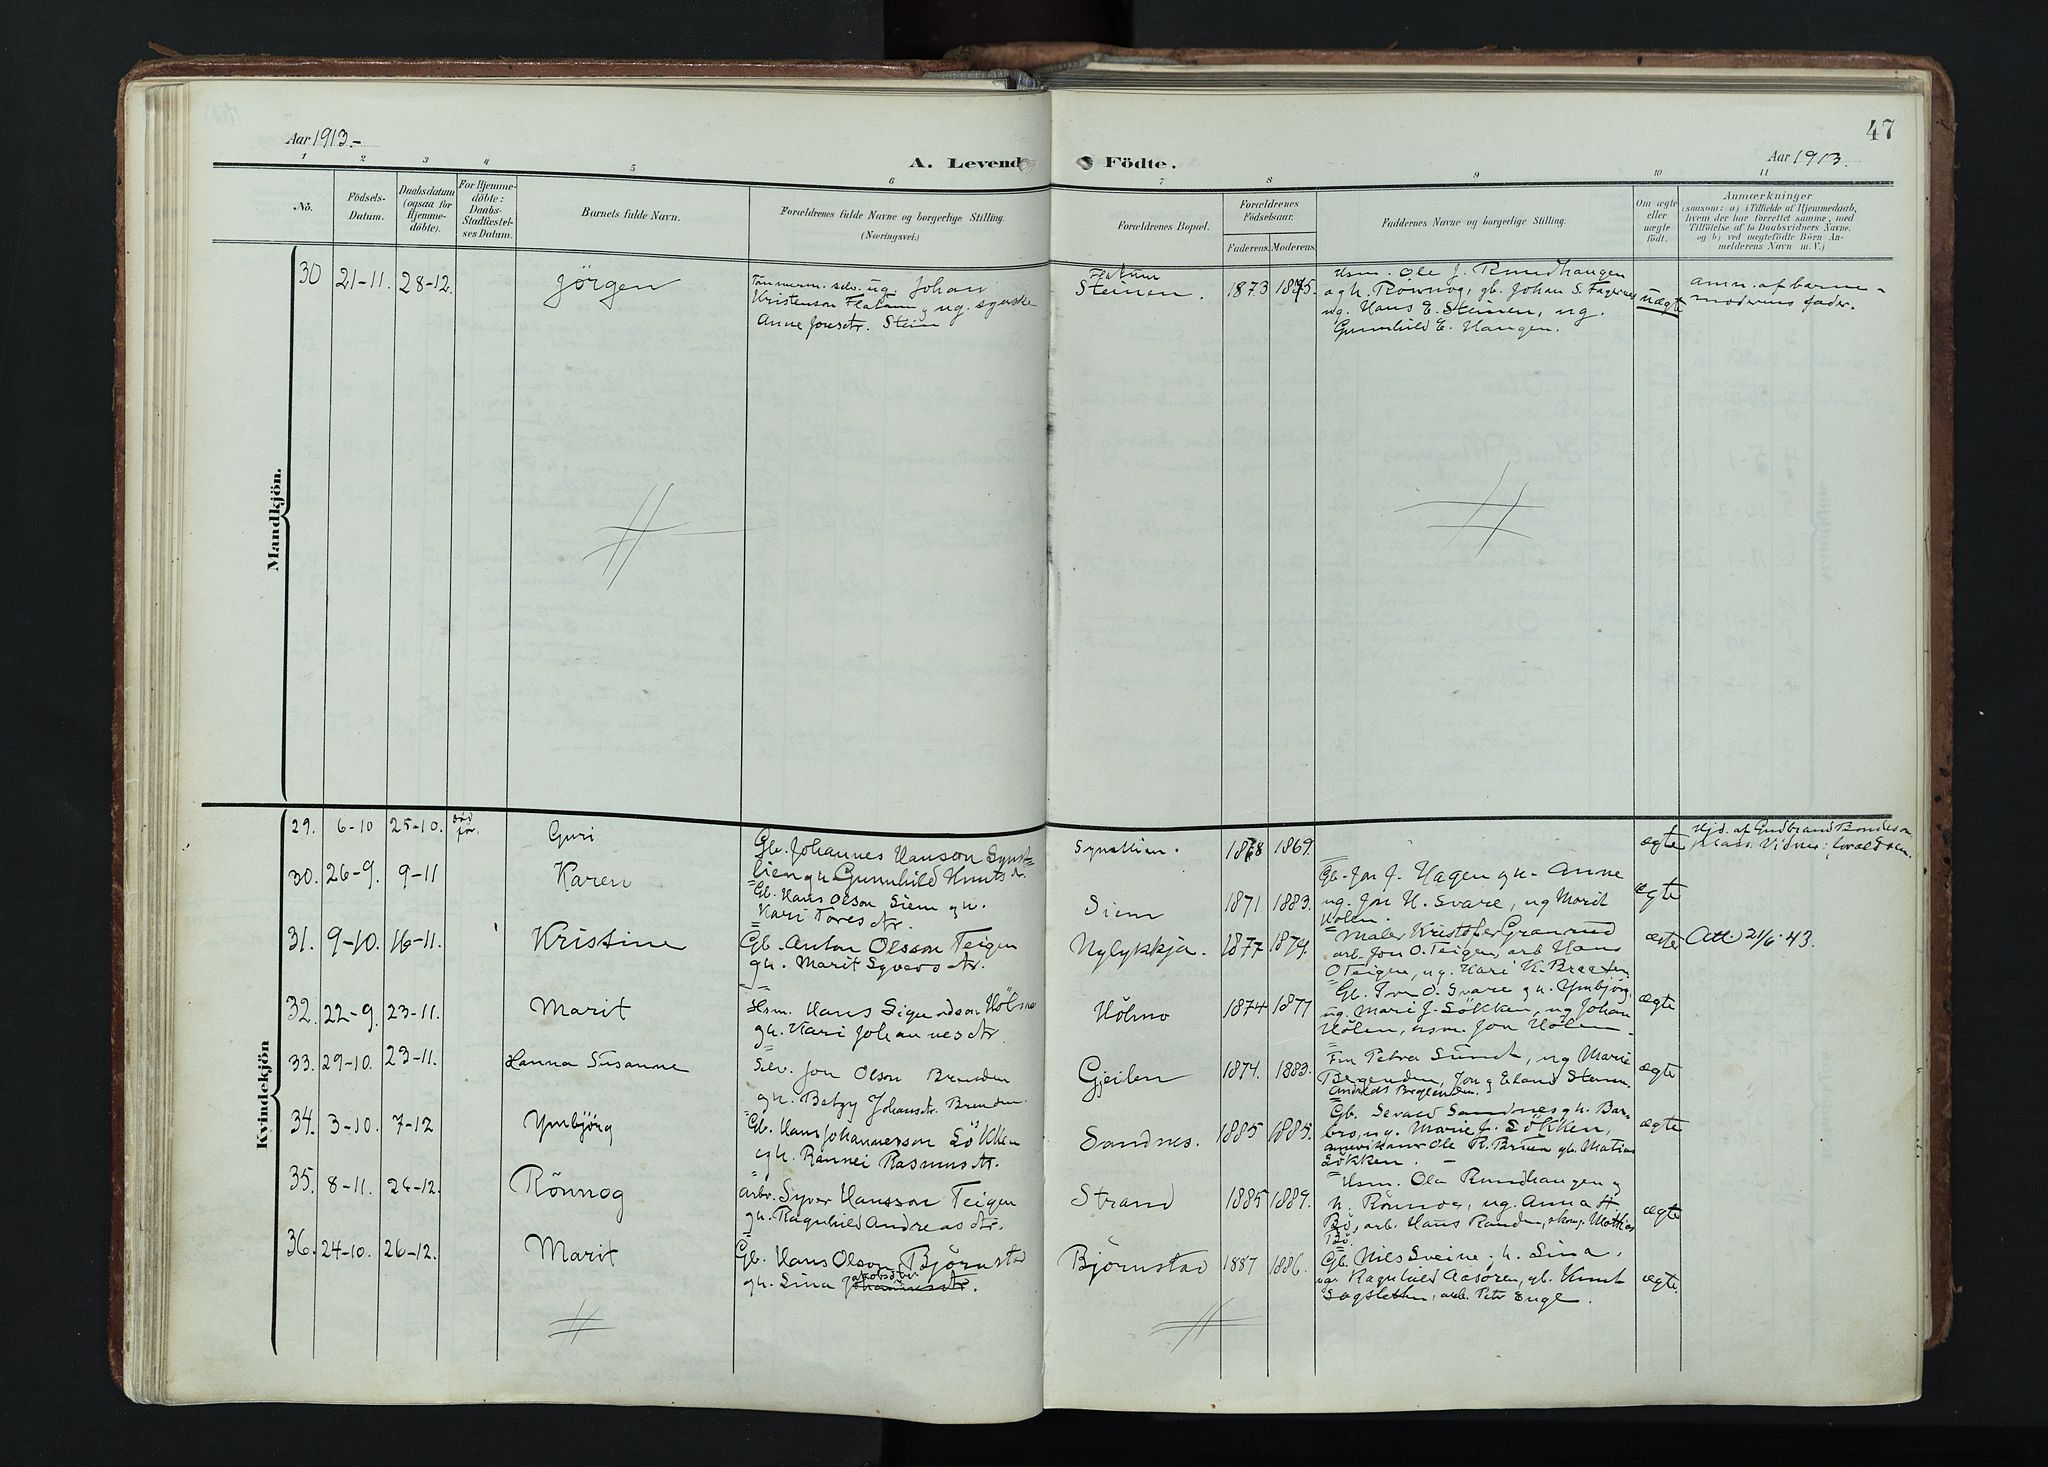 47
Aar 1913.-
A. Levende Födte.
Aar 1913.
1 2 3 4 5 6 7 8 9 10 11
No.
Födsels-
Datum.
Daabsdatum
(ogsaa for
Hjemme-
döbte).
For Hjemme-
döbte:
Daabs-
Stadfæstel-
ses Datum.
Barnets fulde Navn.
Forældrenes fulde Navne og borgerlige Stilling.
(Næringsvei.)
Forældrenes Bopæl.
Forældrenes
Födselsaar.
Faderens. Moderens.
Faddernes Navne og borgerlige Stilling.
Om ægte
eller
uægte
födt.
Anmærkninger
(saasom: a) i Tilfælde af Hjemmedaab,
hvem der har forrettet samme, med
Tilföielse af to Daabsvidners Navne,
og b) ved uægtefödte Börn An-
melderens Navn m. V.)
Mandkjön.
30 21-11. 28-12. Jörgen
Tömmerm. selv. ug. Johan
Kristenson Flatum og ug. syerske
Anne Jonsdtr. Stein
Flatum
Steinen. 1873 1875.
Hsm. Ole J. Rundhaugen
og h. Rönnog, gb. Johan S. Fagernes
ug. Hans E. Steinen, ug.
Gunnhild E. Haugen.
uægte
anm. af barne-
moderens fader.
Kvindekjön
29. 6-10 25-10. Guri
Gb. Johannes Hanson Synst-
lien og h. Gunnhild Knutsdtr.
Synstlien. 1868 1869.
ægte
Hjd. af Gudbrand Bondeson
Klass. Vidner: foræld
30. 26-9. 9-11 Karen
Gb. Hans Olson Siem og h.
Kari Toresdtr.
Siem 1871 1883.
Gb. Jon J. Hagen og h. Anne
ug. Jon H. Svare, ug Marit
Hölen.
ægte
31. 9-10. 16-11. Kristine
Gb. Anton Olsson Teigen
og h. Marit Syversdtr.
Nylykkja. 1877 1879.
Maler Kristofer Granrud
arb. Jon O. Teigen, arb Hans
O Teigen, ug. Kari K. Braaten
ægte
Att. 21/6 43.
32. 22-9. 23-11. Marit
Hsm. Hans Sigurdson Hölmo
og h. Kari Johannesdtr.
Hölmo 1874 1877
Gb. Iver O. Svare og h. Ymbjörg,
ug. Mari J. Sökken, ug Johan
Hölen, hsm. Jon Hölen.
ægte
33. 29-10. 23-11. Hanna Susanne
Selv. Jon Olson Brenden
og h. Betzy Johansdtr. Brenden.
Gjeilen 1874. 1883.
Fru Petra Sundt, ug Marie
Begenden, Jon og Erland Steen
Andreas Begenden.
ægte
34. 3-10. 7-12 Ymbjörg
Gb. Hans Johannesson Sökken
og h. Rannei Rasmusdtr.
Sandnes. 1885 1885.
Gb. Sevald Sandnes og h. Bar-
bro, ug. Marie J. Sökken,
amerikaner Ole R. Bruen gb. Matias
Sökken.
ægte
35. 8-11. 26-12. Rönnog
arb. Syver Hansson Teigen
og h. Ragnhild Andreasdtr.
Strand 1885 1889.
Hsm. Ola Rundhaugen og
h. Rönnog, ug. Anna H.
Bö, arb. Hans Randen, skom. Mathias
Bö.
ægte
36. 24-10. 26-12. Marit
Gb. Hans Olson Björnstad
og h. Sina Jakobsdtr.
Johannesdtr.
Björnstad 1887 1886.
Gb. Nils Sveine, h. Sina,
ug. Ragnhild Aasören, gb. Knut
Sagsletten, arb. Petr Enge.
ægte.